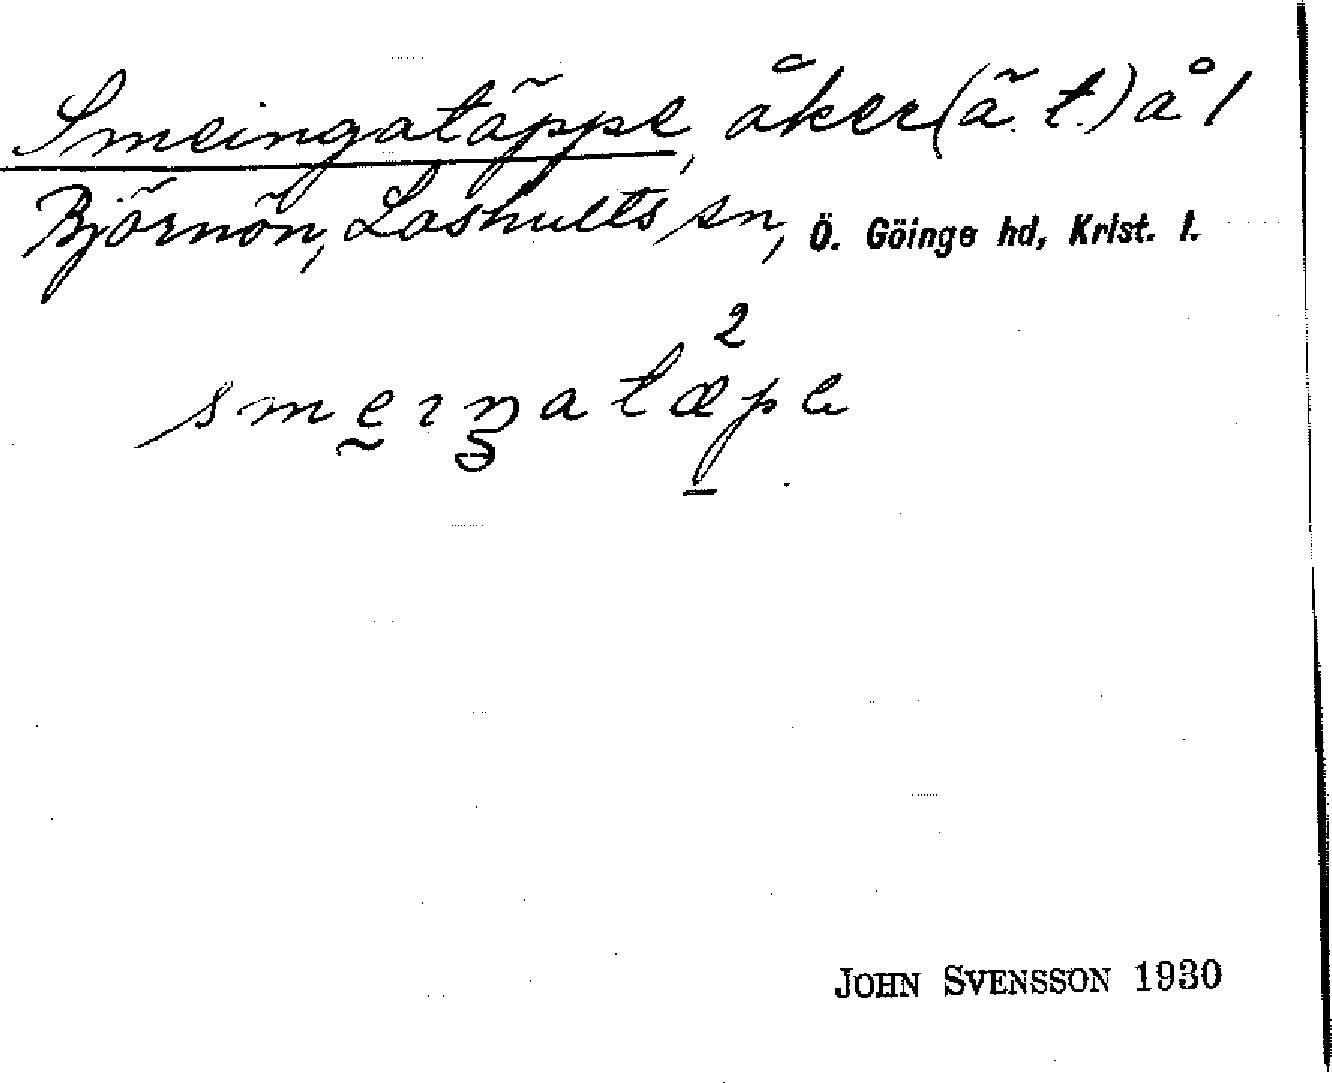 Smeingatäppe, åker (ä. t.) å 1
Björnön, Loshults sn, Ö. Göinge hd, Krist. l.
2
smeiŋatæpe
JOHN SVENSSON 1930